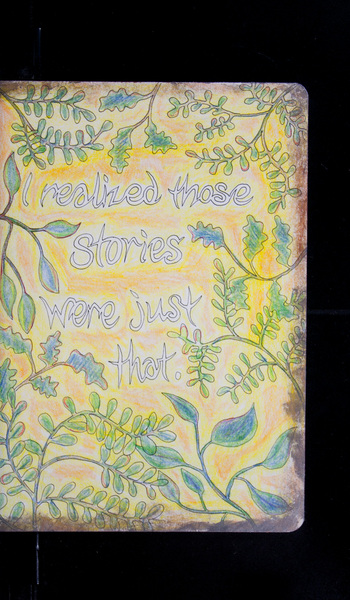 I realized those
stories
were just
that.